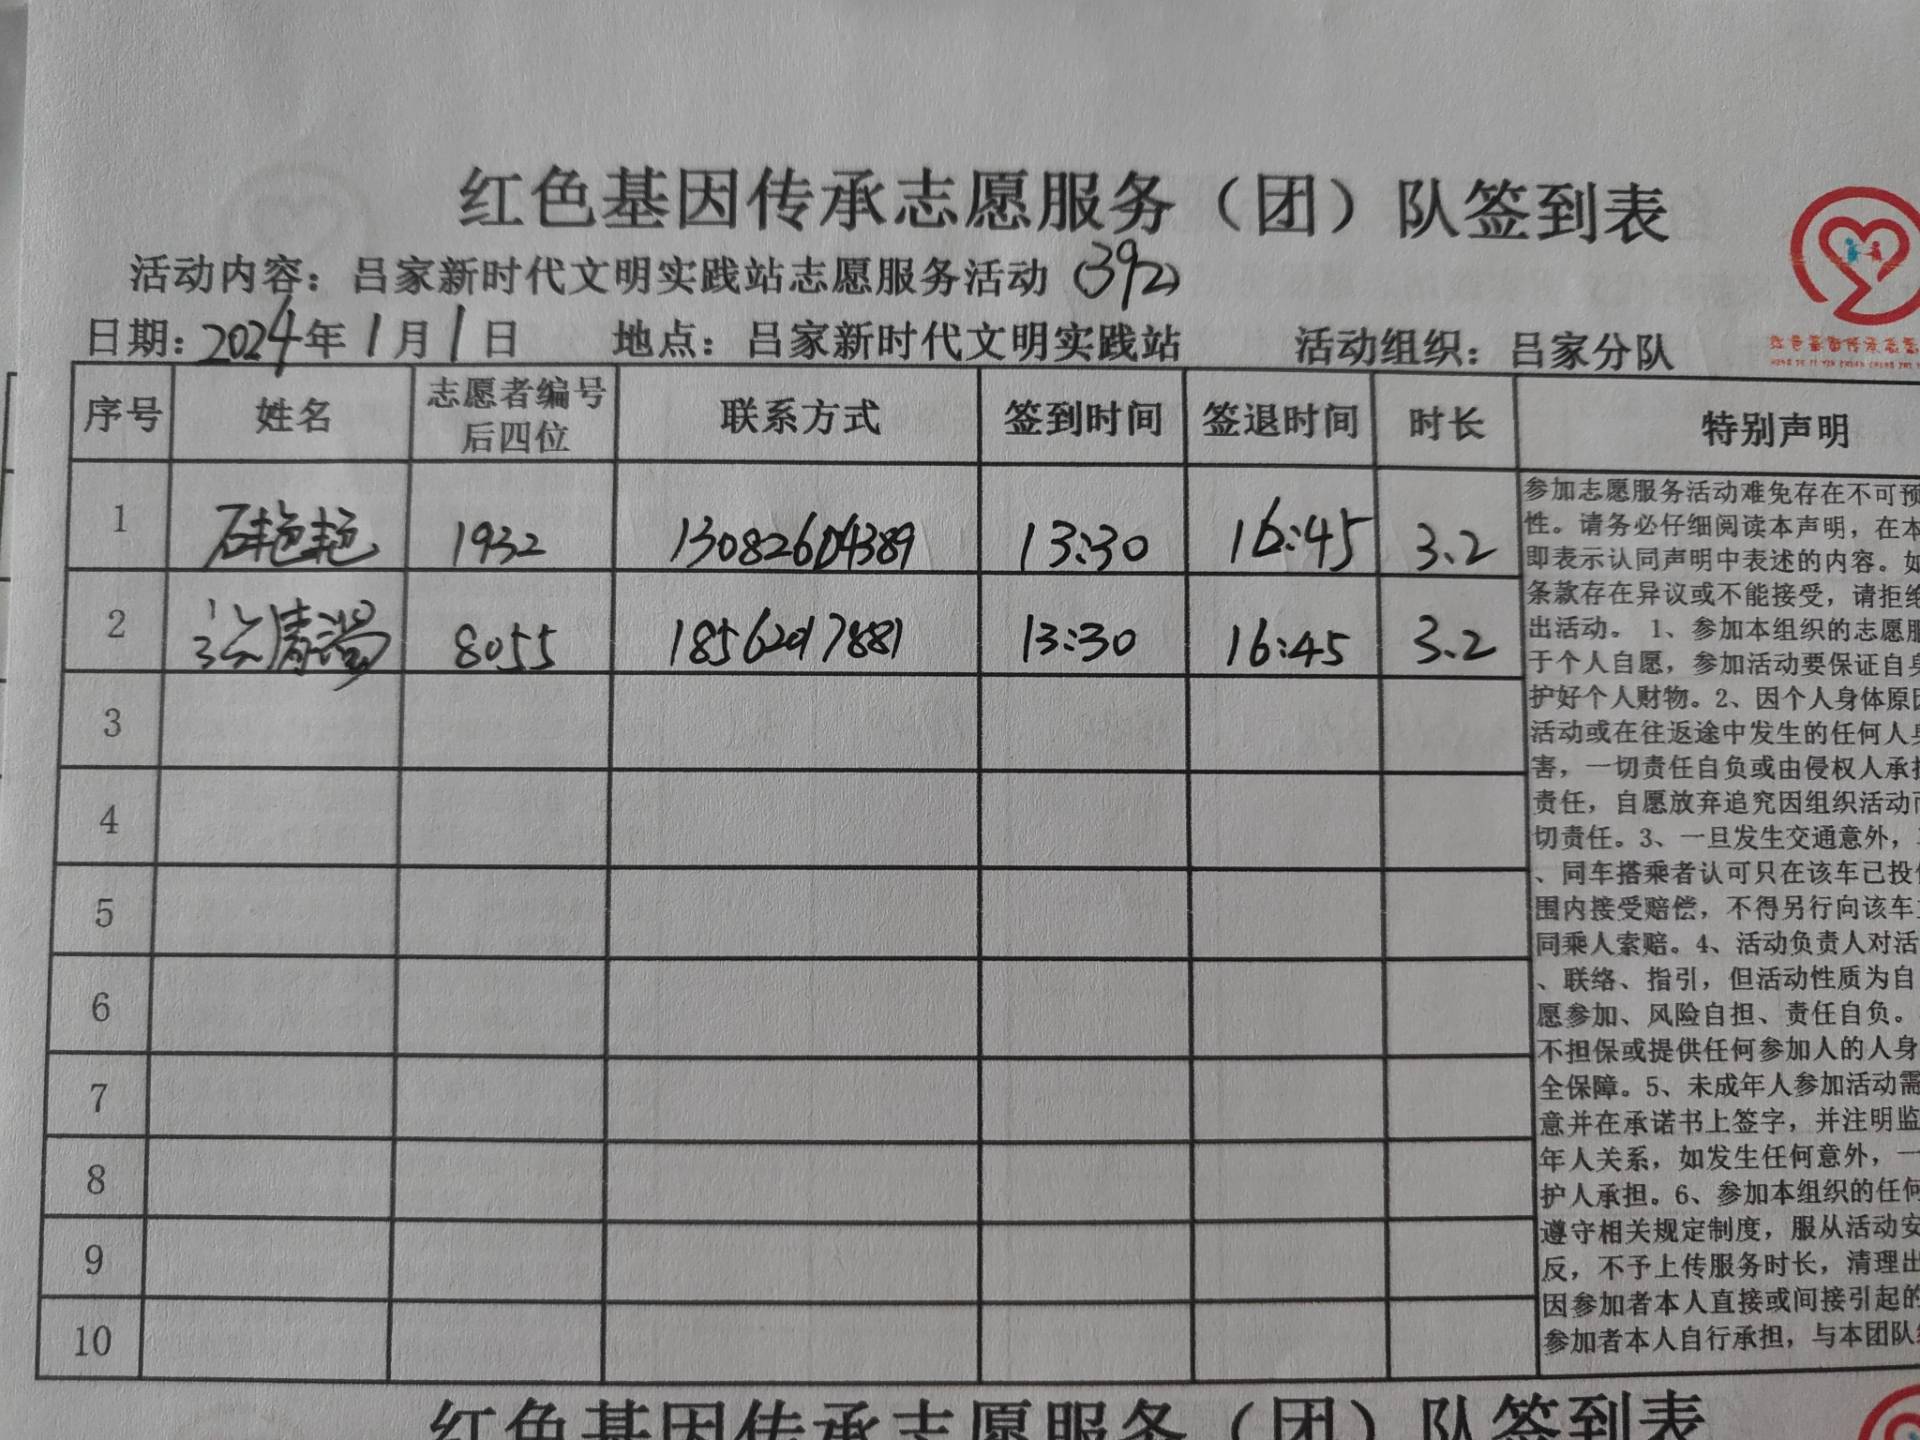 红色基因传承志愿服务（团）队签到表
活动内容：吕家新时代文明实践站志愿服务活动（392）
日期：2024年1月1日 地点：吕家新时代文明实践站 活动组织：吕家分队
序号 姓名 志愿者编号后四位 联系方式 签到时间 签退时间 时长 特别声明
1 石艳艳 1932 13082604389 13:30 16:45 3.2
2 8055 18562017881 13:30 16:45 3.2
3
4
5
6
7
8
9
10
参加志愿服务活动难免存在不可预
性。请务必仔细阅读本声明，在本
即表示认同声明中表述的内容。如
条款存在异议或不能接受，请拒绝
出活动。 1、参加本组织的志愿服
于个人自愿，参加活动要保证自身
护好个人财物。2、因个人身体原因
活动或在往返途中发生的任何人身
害，一切责任自负或由侵权人承担
责任，自愿放弃追究因组织活动而
切责任。3、一旦发生交通意外，
、同车搭乘者认可只在该车已投保
围内接受赔偿，不得另行向该车主
同乘人索赔。4、活动负责人对活
、联络、指引，但活动性质为自
愿参加、风险自担、责任自负。
不担保或提供任何参加人的人身
全保障。5、未成年人参加活动需
意并在承诺书上签字，并注明监
年人关系，如发生任何意外，一
护人承担。6、参加本组织的任何
遵守相关规定制度，服从活动安
反，不予上传服务时长，清理出
因参加者本人直接或间接引起的
参加者本人自行承担，与本团队
红色基因传承志愿服务（团）队签到表